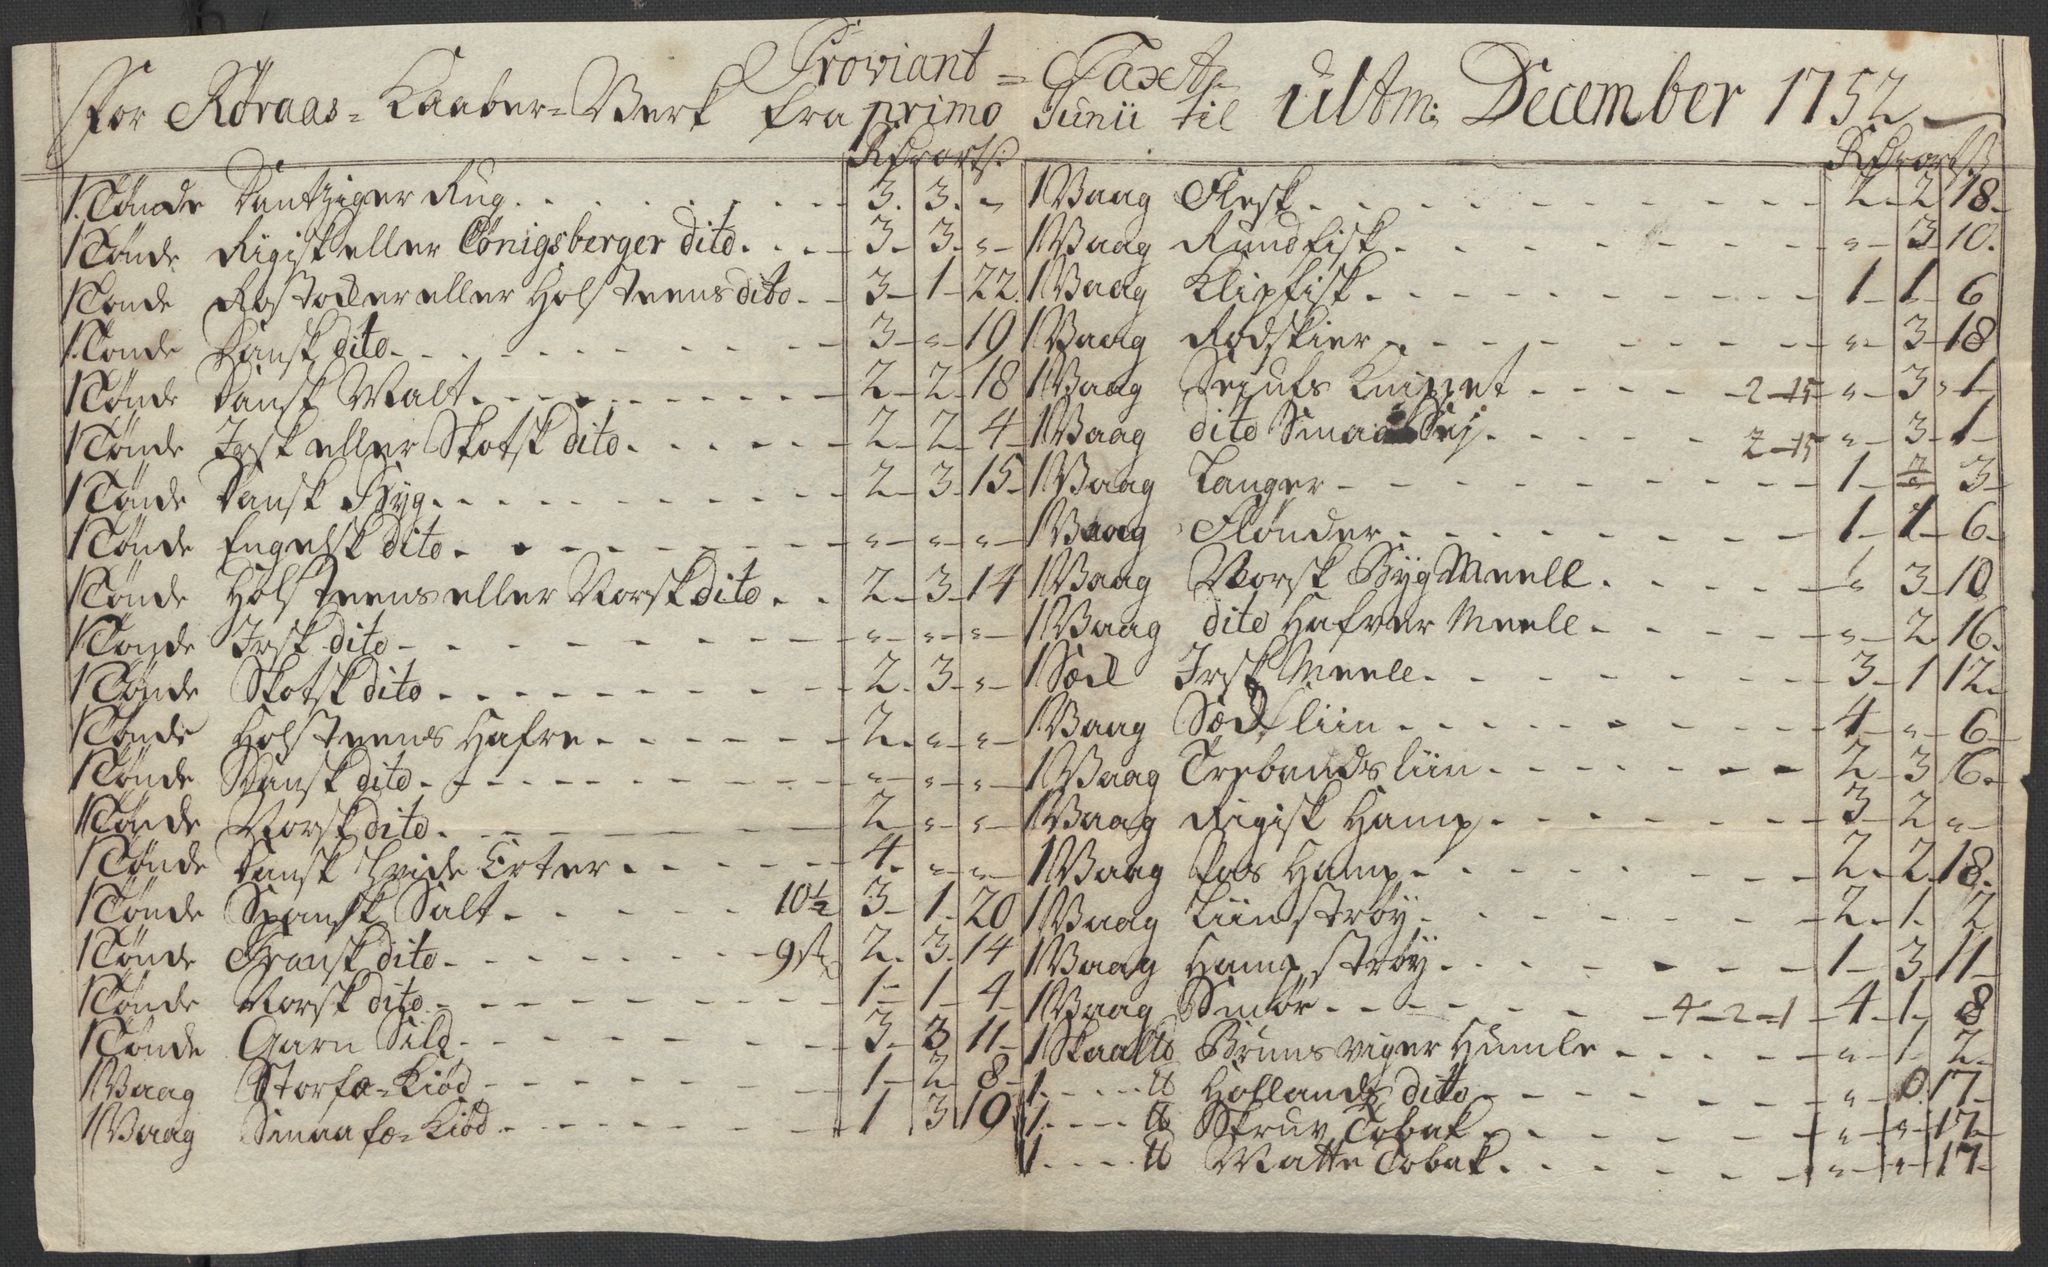 Proviant = Taxt
For Røraas = Kaaber = Werk fra primo Junii til Ultm: December 1752
Rdr ort ß:
1 Tønde Dantziger Rug 3. 3. "
1 Tønde Rigisk eller Cönigsberger dito 3 3 "
1 Tønde Rostocker eller Holsteens dito 3 1 22
1 Tønde Dansk dito 3 " 19
1 Tønde Dansk Malt 2 2 18
1 Tønde Irsk eller Skotsk dito 2 2 4
1 Tønde Dansk Byg 2 3 15
1 Tønde Engelsk dito " " "
1 Tønde Holsteens eller Norsk dito 2 3 14
1 Tønde Irsk dito " " "
1 Tønde Skotsk dito 2 3 "
1 Tønde Holsteens Hafre 2 " "
1 Tønde Dansk dito " " "
1 Tønde Norsk dito 2 " "
1 Tønde Dansk Hvide Erter 4 " "
1 Tønde Spansk Salt 10½ 3 1 20
1 Tønde Fransk dito 2 3 14
1 Tønde Norsk dito 1 1 4
1 Tønde Garn Sild 3 3 11
1 Vaag Storfæ = Kiød 1 2 8
1 Vaag Smaafæ = Kiød 1 3 19
Rdr ort ß
1 Vaag Flesk 2 2 18
1 Vaag Rundfisk " 3 10
1 Vaag Klipfisk 1 1 6
1 Vaag Rodskier " 3 18
1 Vaag Sejufs Knippet 2-15 " 3 1
1 Vaag dito Smaa Sej 2-15 " 3 1
1 Vaag Langer 1 3
1 Vaag Flønder 1 1 6
1 Vaag Norsk Byg Meell " 3 10
1 Vaag dito Hafver Meell " 2 16
1 Sæck Irsk Meell 3 1 12
1 Vaag liin 4 " 6
1 Vaag Trebands liin 2 3 16
1 Vaag Rigisk Hamp 3 2 "
1 Vaag Pas Hamp 2 2 18
1 Vaag Liinstrøÿ 2 1 2
1 Vaag Hampstrøÿ 1 3 11
1 Vaag Smør 4-2-1 4 1 8
1 Skaalld Brunsviger Humle " 1 2
1 ℔ Hollands ditto " 0 17
1 ℔ Skruv Tobak " " 17
1 ℔ Matte Tobak " " 17